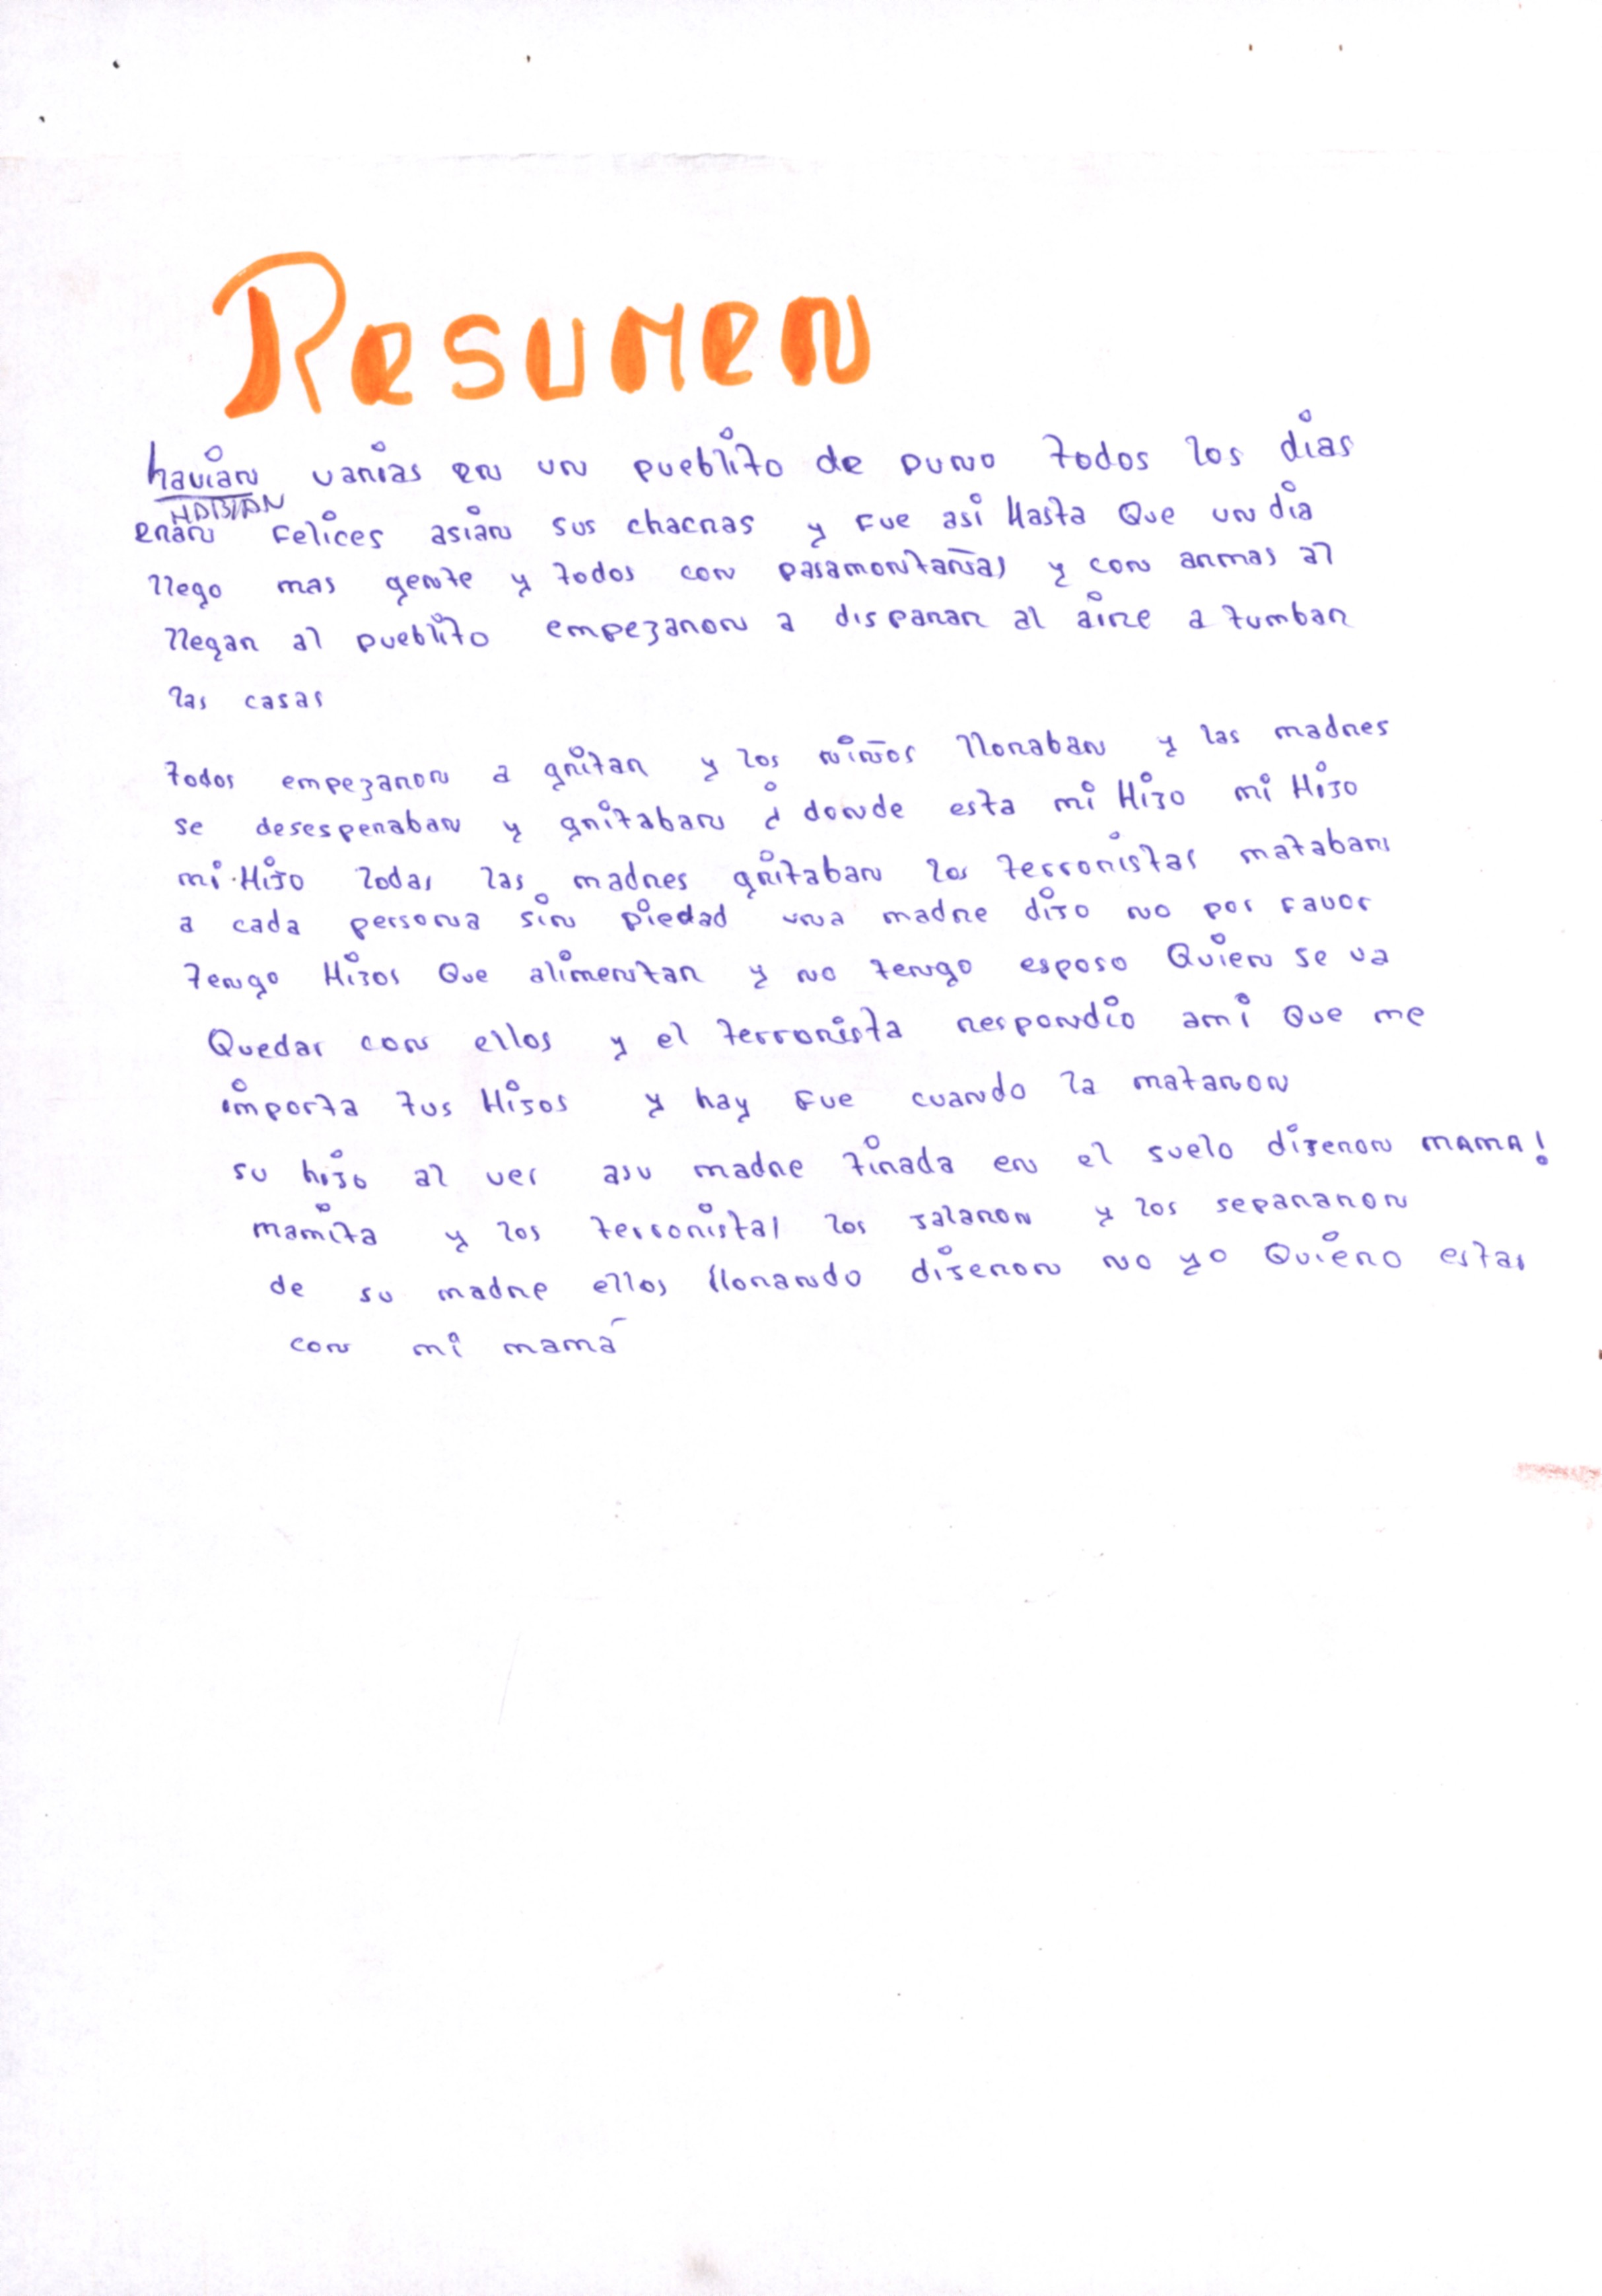 Resumen
havian varias en un pueblito de puno todos los dias
HABIAN
eran Felices asian sus chacras y Fue asi Hasta Que un dia
llego mas gente y todos con pasamontañas y con armas al
llegar al pueblito empezaron a disparar al aire a tumbar
las casas
todos empezaron a gritar y los niños lloraban y las madres
se desesperaban y gritaban ¿ donde esta mi Hijo mi Hijo
mi Hijo todas las madres gritaban los terroristas mataban
a cada persona sin piedad una madre dijo no por Favor
tengo Hijos Que alimentar y no tengo esposo Quien se va
Quedar con ellos y el terrorista respondio ami Que me
importa tus Hijos y hay Fue cuando la mataron
su hijo al ver asu madre tirada en el suelo dijeron MAMA!
mamita y los terroristas los jalaron y los separaron
de su madre ellos llorando dijeron no yo Quiero estar
con mi mamá